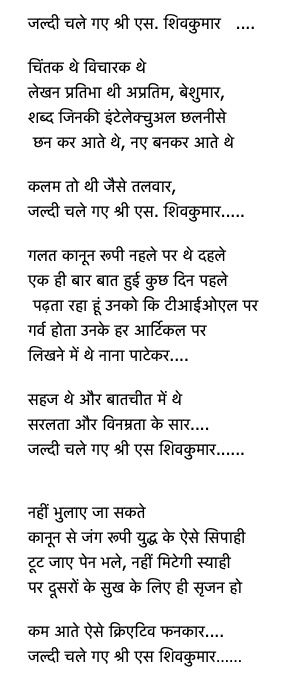 जल्दी चले गए श्री एस. शिवकुमार ....
चिंतक थे विचारक थे
लेखन प्रतिभा थी अप्रतिम, बेशुमार,
शब्द जिनकी इंटेलेक्चुअल छलनीसे
छन कर आते थे, नए बनकर आते थे
कलम तो थी जैसे तलवार,
जल्दी चले गए श्री एस. शिवकुमार.....
गलत कानून रूपी नहले पर थे दहले
एक ही बार बात हुई कुछ दिन पहले
पढ़ता रहा हूं उनको कि टीआईओएल पर
गर्व होता उनके हर आर्टिकल पर
लिखने में थे नाना पाटेकर....
सहज थे और बातचीत में थे
सरलता और विनम्रता के सार....
जल्दी चले गए श्री एस शिवकुमार......
नहीं भुलाए जा सकते
कानून से जंग रूपी युद्ध के ऐसे सिपाही
टूट जाए पेन भले, नहीं मिटेगी स्याही
पर दूसरों के सुख के लिए ही सृजन हो
कम आते ऐसे क्रिएटिव फनकार....
जल्दी चले गए श्री एस शिवकुमार......